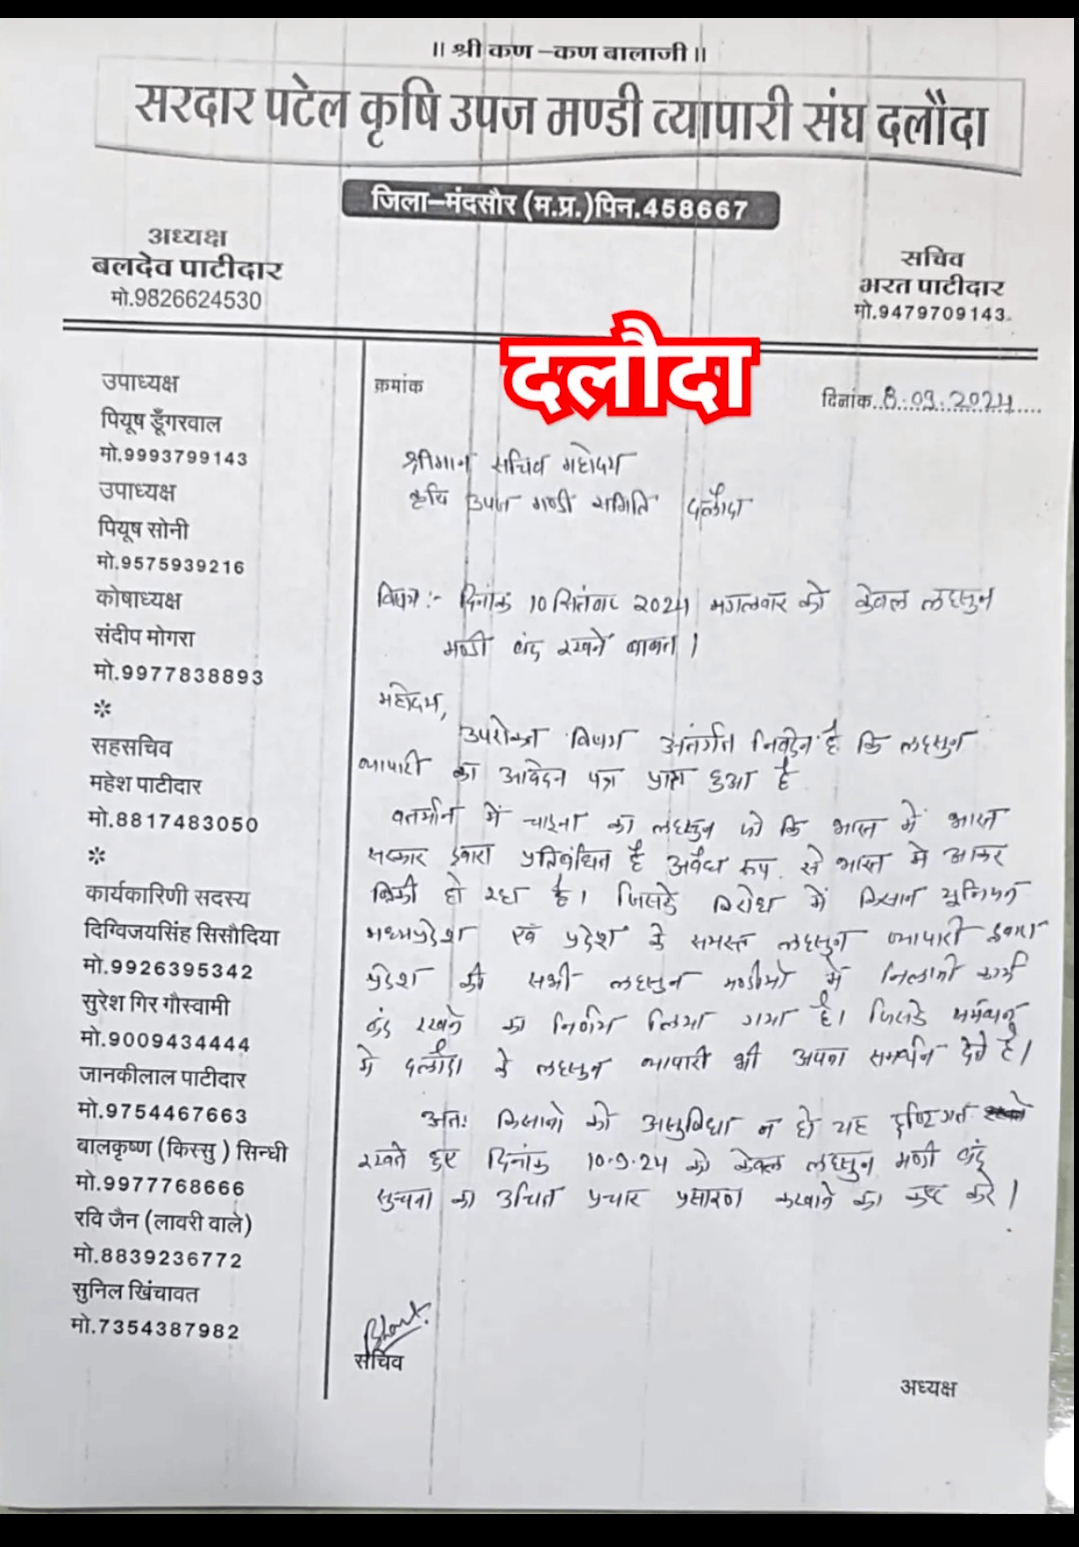 ॥ श्री कण –कण बालाजी ॥
सरदार पटेल कृषि उपज मण्डी व्यापारी संघ दलौदा
जिला–मंदसौर (म.प्र.)पिन.458667
अध्यक्ष
बलदेव पाटीदार
मो.9826624530
सचिव
भरत पाटीदार
मो.9479709143
दलौदा
उपाध्यक्ष
पियूष डूँगरवाल
मो.9993799143
उपाध्यक्ष
पियूष सोनी
मो.9575939216
कोषाध्यक्ष
संदीप मोगरा
मो.9977838893
*
सहसचिव
महेश पाटीदार
मो.8817483050
*
कार्यकारिणी सदस्य
दिग्विजयसिंह सिसौदिया
मो.9926395342
सुरेश गिर गौस्वामी
मो.9009434444
जानकीलाल पाटीदार
मो.9754467663
बालकृष्ण (किस्सु ) सिन्धी
मो.9977768666
रवि जैन (लावरी वाले)
मो.8839236772
सुनिल खिंचावत
मो.7354387982
क्रमांक
दिनांक 8.09.2024
श्रीमान सचिव महोदय
कृषि उपज मण्डी समिति दलौदा
विषय:- दिनांक 10 सितंबर 2024 मंगलवार को केवल लहसुन
मण्डी बंद रखने बाबत।
महोदय,
उपरोक्त विषय अंतर्गत निवेदन है कि लहसुन
व्यापारी का आवेदन पत्र प्राप्त हुआ है
वतर्मान में चाइना का लहसुन जो कि भारत में भारत
सरकार द्वारा प्रतिबंधित है अवैध रूप से भारत मे आकर
बिक्री हो रहा है। जिसके विरोध में किसान यूनियन
मध्यप्रदेश एवं प्रदेश के समस्त लहसुन व्यापारी द्वारा
प्रदेश की सभी लहसुन मण्डीयो में निलामी कार्य
बंद रखने का निर्णय लिया गया है। जिसके समर्थन
मे दलौदा के लहसुन व्यापारी भी अपना समर्थन देते है।
अतः किसानो को असुविधा न हो यह दृष्टिगत
रखते हुए दिनांक 10-9-24 को केवल लहसुन मण्डी बंद
सुचना का उचित प्रचार प्रसारण करवाने का कष्ट करे।
Bharat
सचिव
अध्यक्ष